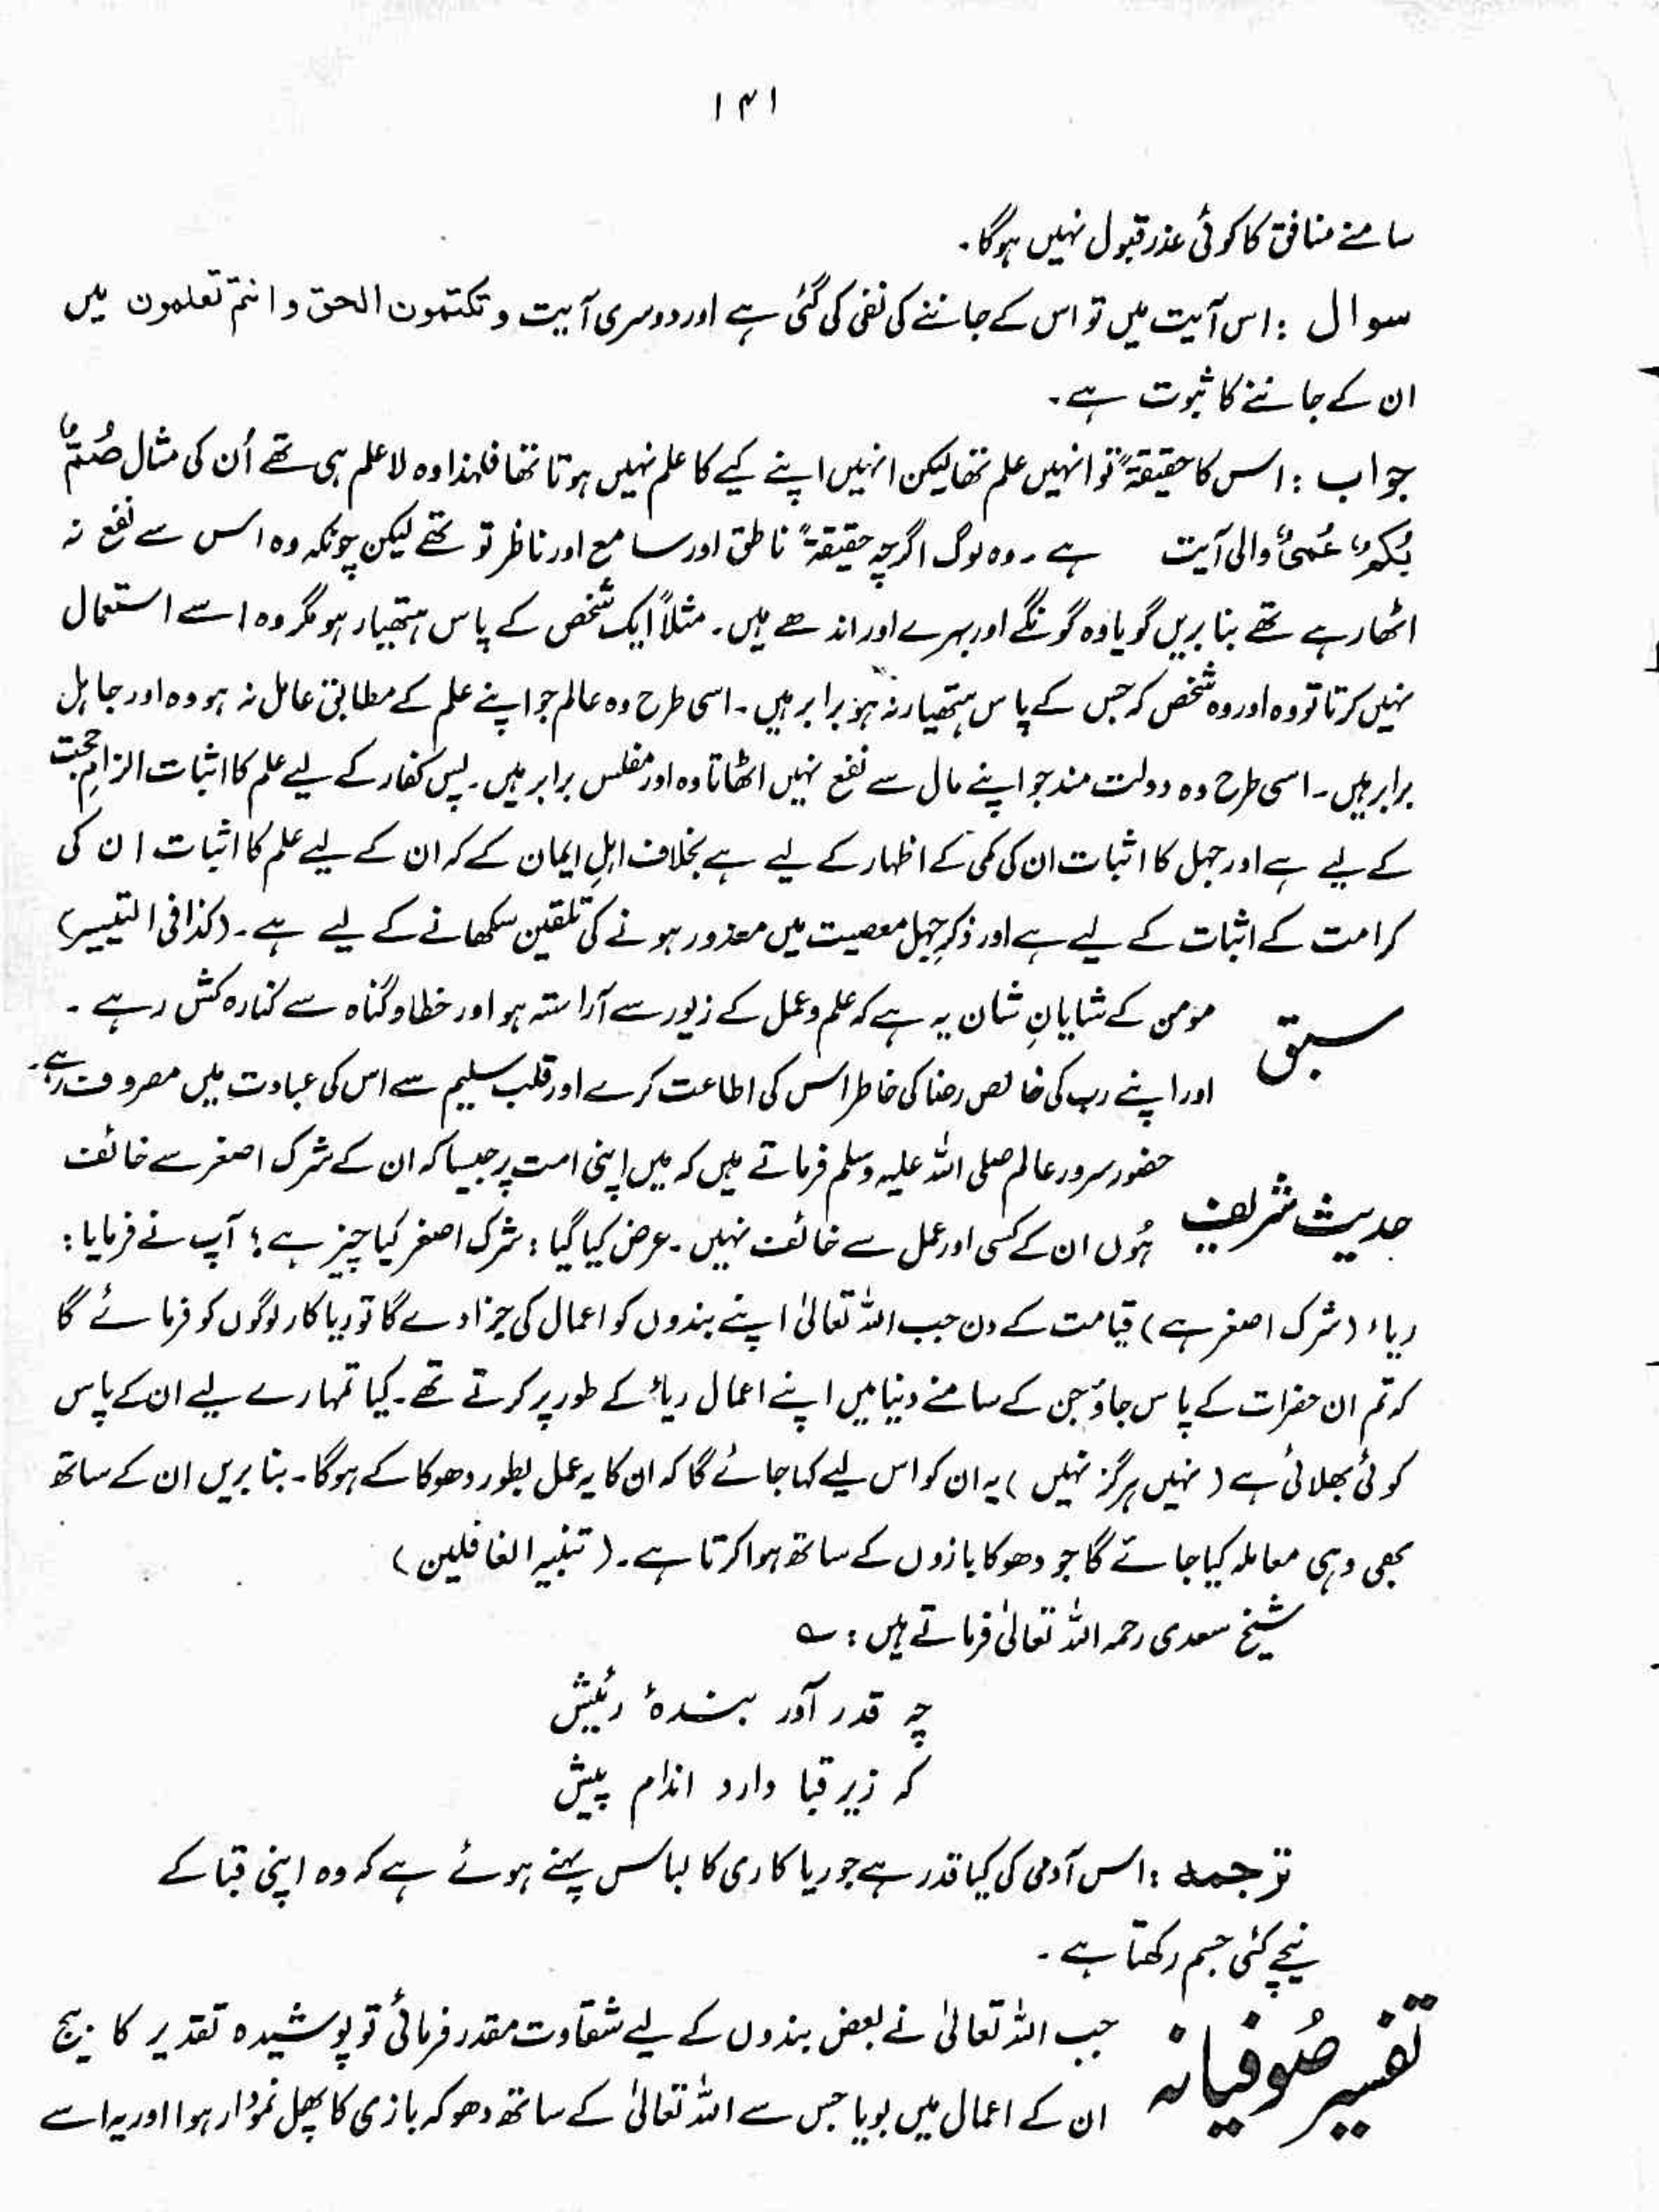 ۱۴۱
سامنے منافق کا کوئی عذر قبول نہیں ہوگا۔
سوال : اس آیت میں تو اس کے جاننے کی نفی کی گئی ہے اور دوسری آیت و تکتمون الحق و انتم تعلمون میں
ان کے جاننے کا ثبوت ہے۔
جواب : اس کا حقیقۃً تو انہیں علم تھا لیکن انہیں اپنے کیے کا علم نہیں ہوتا تھا فلہذا وہ لاعلم ہی تھے اُن کی مثال صُمٌّ
بُکْمٌ عُمْیٌ والی آیت ہے۔ وہ لوگ اگرچہ حقیقۃً ناطق اور سامع اور ناظر تو تھے لیکن چونکہ وہ اس سے نفع نہ
اٹھا رہے تھے بنا بریں گویا وہ گونگے اور بہرے اور اندھے ہیں۔ مثلاً ایک شخص کے پاس ہتھیار ہو مگر وہ اسے استعمال
نہیں کرتا تو وہ اور وہ شخص کہ جس کے پاس ہتھیار نہ ہو، برابر ہیں۔ اسی طرح وہ عالم جو اپنے علم کے مطابق عامل نہ ہو وہ اور جاہل
برابر ہیں۔ اسی طرح وہ دولت مند جو اپنے مال سے نفع نہیں اٹھاتا وہ اور مفلس برابر ہیں۔ پس کفار کے لیے علم کا اثبات الزامِ حجت
کے لیے ہے اور جہل کا اثبات ان کی کمی کے اظہار کے لیے ہے بخلاف اہلِ ایمان کے کہ ان کے لیے علم کا اثبات ان کی
کرامت کے اثبات کے لیے ہے اور ذکرِ جہل معصیت میں معذور ہونے کی تلقین سکھانے کے لیے ہے۔ (کذا فی التیسیر)
سبق مومن کے شایانِ شان یہ ہے کہ علم و عمل کے زیور سے آراستہ ہو اور خطا و گناہ سے کنارہ کش رہے۔
اور اپنے رب کی خالص رضا کی خاطر اس کی اطاعت کرے اور قلبِ سلیم سے اس کی عبادت میں مصروف رہے۔
حدیث شریف حضور سرور عالم صلی اللہ علیہ وسلم فرماتے ہیں کہ میں اپنی امت پر جیسا کہ ان کے شرک اصغر سے خائف
ہُوں ان کے کسی اور عمل سے خائف نہیں۔ عرض کیا گیا : شرک اصغر کیا چیز ہے ؟ آپ نے فرمایا :
ریاء (شرک اصغر ہے) قیامت کے دن جب اللہ تعالیٰ اپنے بندوں کو اعمال کی جزا دے گا تو ریاکار لوگوں کو فرمائے گا
کہ تم ان حضرات کے پاس جاؤ جن کے سامنے دنیا میں اپنے اعمال ریاء کے طور پر کرتے تھے۔ کیا تمہارے لیے ان کے پاس
کوئی بھلائی ہے (نہیں ہرگز نہیں) یہ ان کو اس لیے کہا جائے گا کہ ان کا یہ عمل بطور دھوکا کے ہوگا۔ بنا بریں ان کے ساتھ
بھی وہی معاملہ کیا جائے گا جو دھوکا بازوں کے ساتھ ہوا کرتا ہے۔ (تنبیہ الغافلین)
شیخ سعدی رحمہ اللہ تعالیٰ فرماتے ہیں : ؎
چہ قدر آور بندۂ رئیش
کہ زیر قبا دارد اندام پیش
ترجمہ : اس آدمی کی کیا قدر ہے جو ریاکاری کا لباس پہنے ہوئے ہے کہ وہ اپنی قبا کے
نیچے کئی جسم رکھتا ہے۔
تفسیر صُوفیانہ جب اللہ تعالیٰ نے بعض بندوں کے لیے شقاوت مقدر فرمائی تو پوشیدہ تقدیر کا بیج
ان کے اعمال میں بویا جس سے اللہ تعالیٰ کے ساتھ دھوکہ بازی کا پھل نمودار ہوا اور یہ اسے